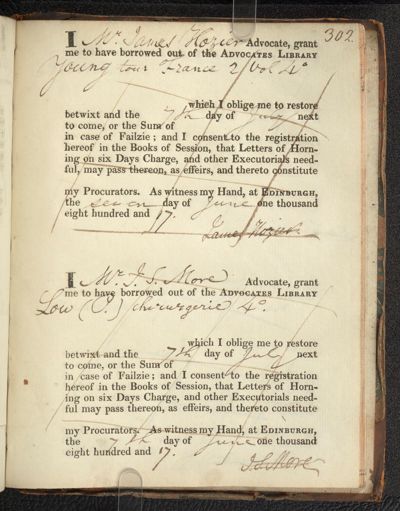 302
I Mr. James Hozier Advocate, grant
me to have borrowed out of the ADVOCATES LIBRARY
Young tour France 2 Vol 4o
which I oblige me to restore
betwixt and the 7th day of July next
to come, or the Sum of
in case of Failzie; and I consent to the registration
hereof in the Books of Session, that Letters of Horn-
ing on six Days Charge, and other Executorials need-
ful, may pass thereon, as effeirs, and thereto constitute
my Procurators. As witness my Hand, at EDINBURGH,
the seven day of June one thousand
eight hundred and 17.
James Hozier
I Mr. J. S. More Advocate, grant
me to have borrowed out of the ADVOCATES LIBRARY
Low (P.) chirurgerie 4o.
which I oblige me to restore
betwixt and the 7th day of July next
to come, or the Sum of
in case of Failzie; and I consent to the registration
hereof in the Books of Session, that Letters of Horn-
ing on six Days Charge, and other Executorials need-
ful may pass thereon, as effeirs, and thereto constitute
my Procurators. As witness my Hand, at EDINBURGH,
the 7th day of June one thousand
eight hundred and 17.
J. S. More